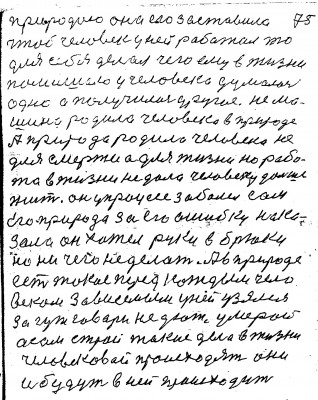 природою она его заставила 75
чтоб человек у ней работал то
для себя делал чего ему в жизни
помишало у человека думалося
одно а получилося другое. не ма-
шина родила человека в природе
А природа родила человека не
для смерти а для жизни но рабо-
та в жизни не дала человеку дальше
жит. он у процесе заболел сам
его природа за его ошибку нака-
зала он хотел руки в брюки
но ничего не делат. А в природе
ест такое перед каждым чело
веком Зависемый у ней узялся
за гуж говори не дюж. умерай
а сам строй такие дела в жизни
человековай происходят они
и будут в ней происходит